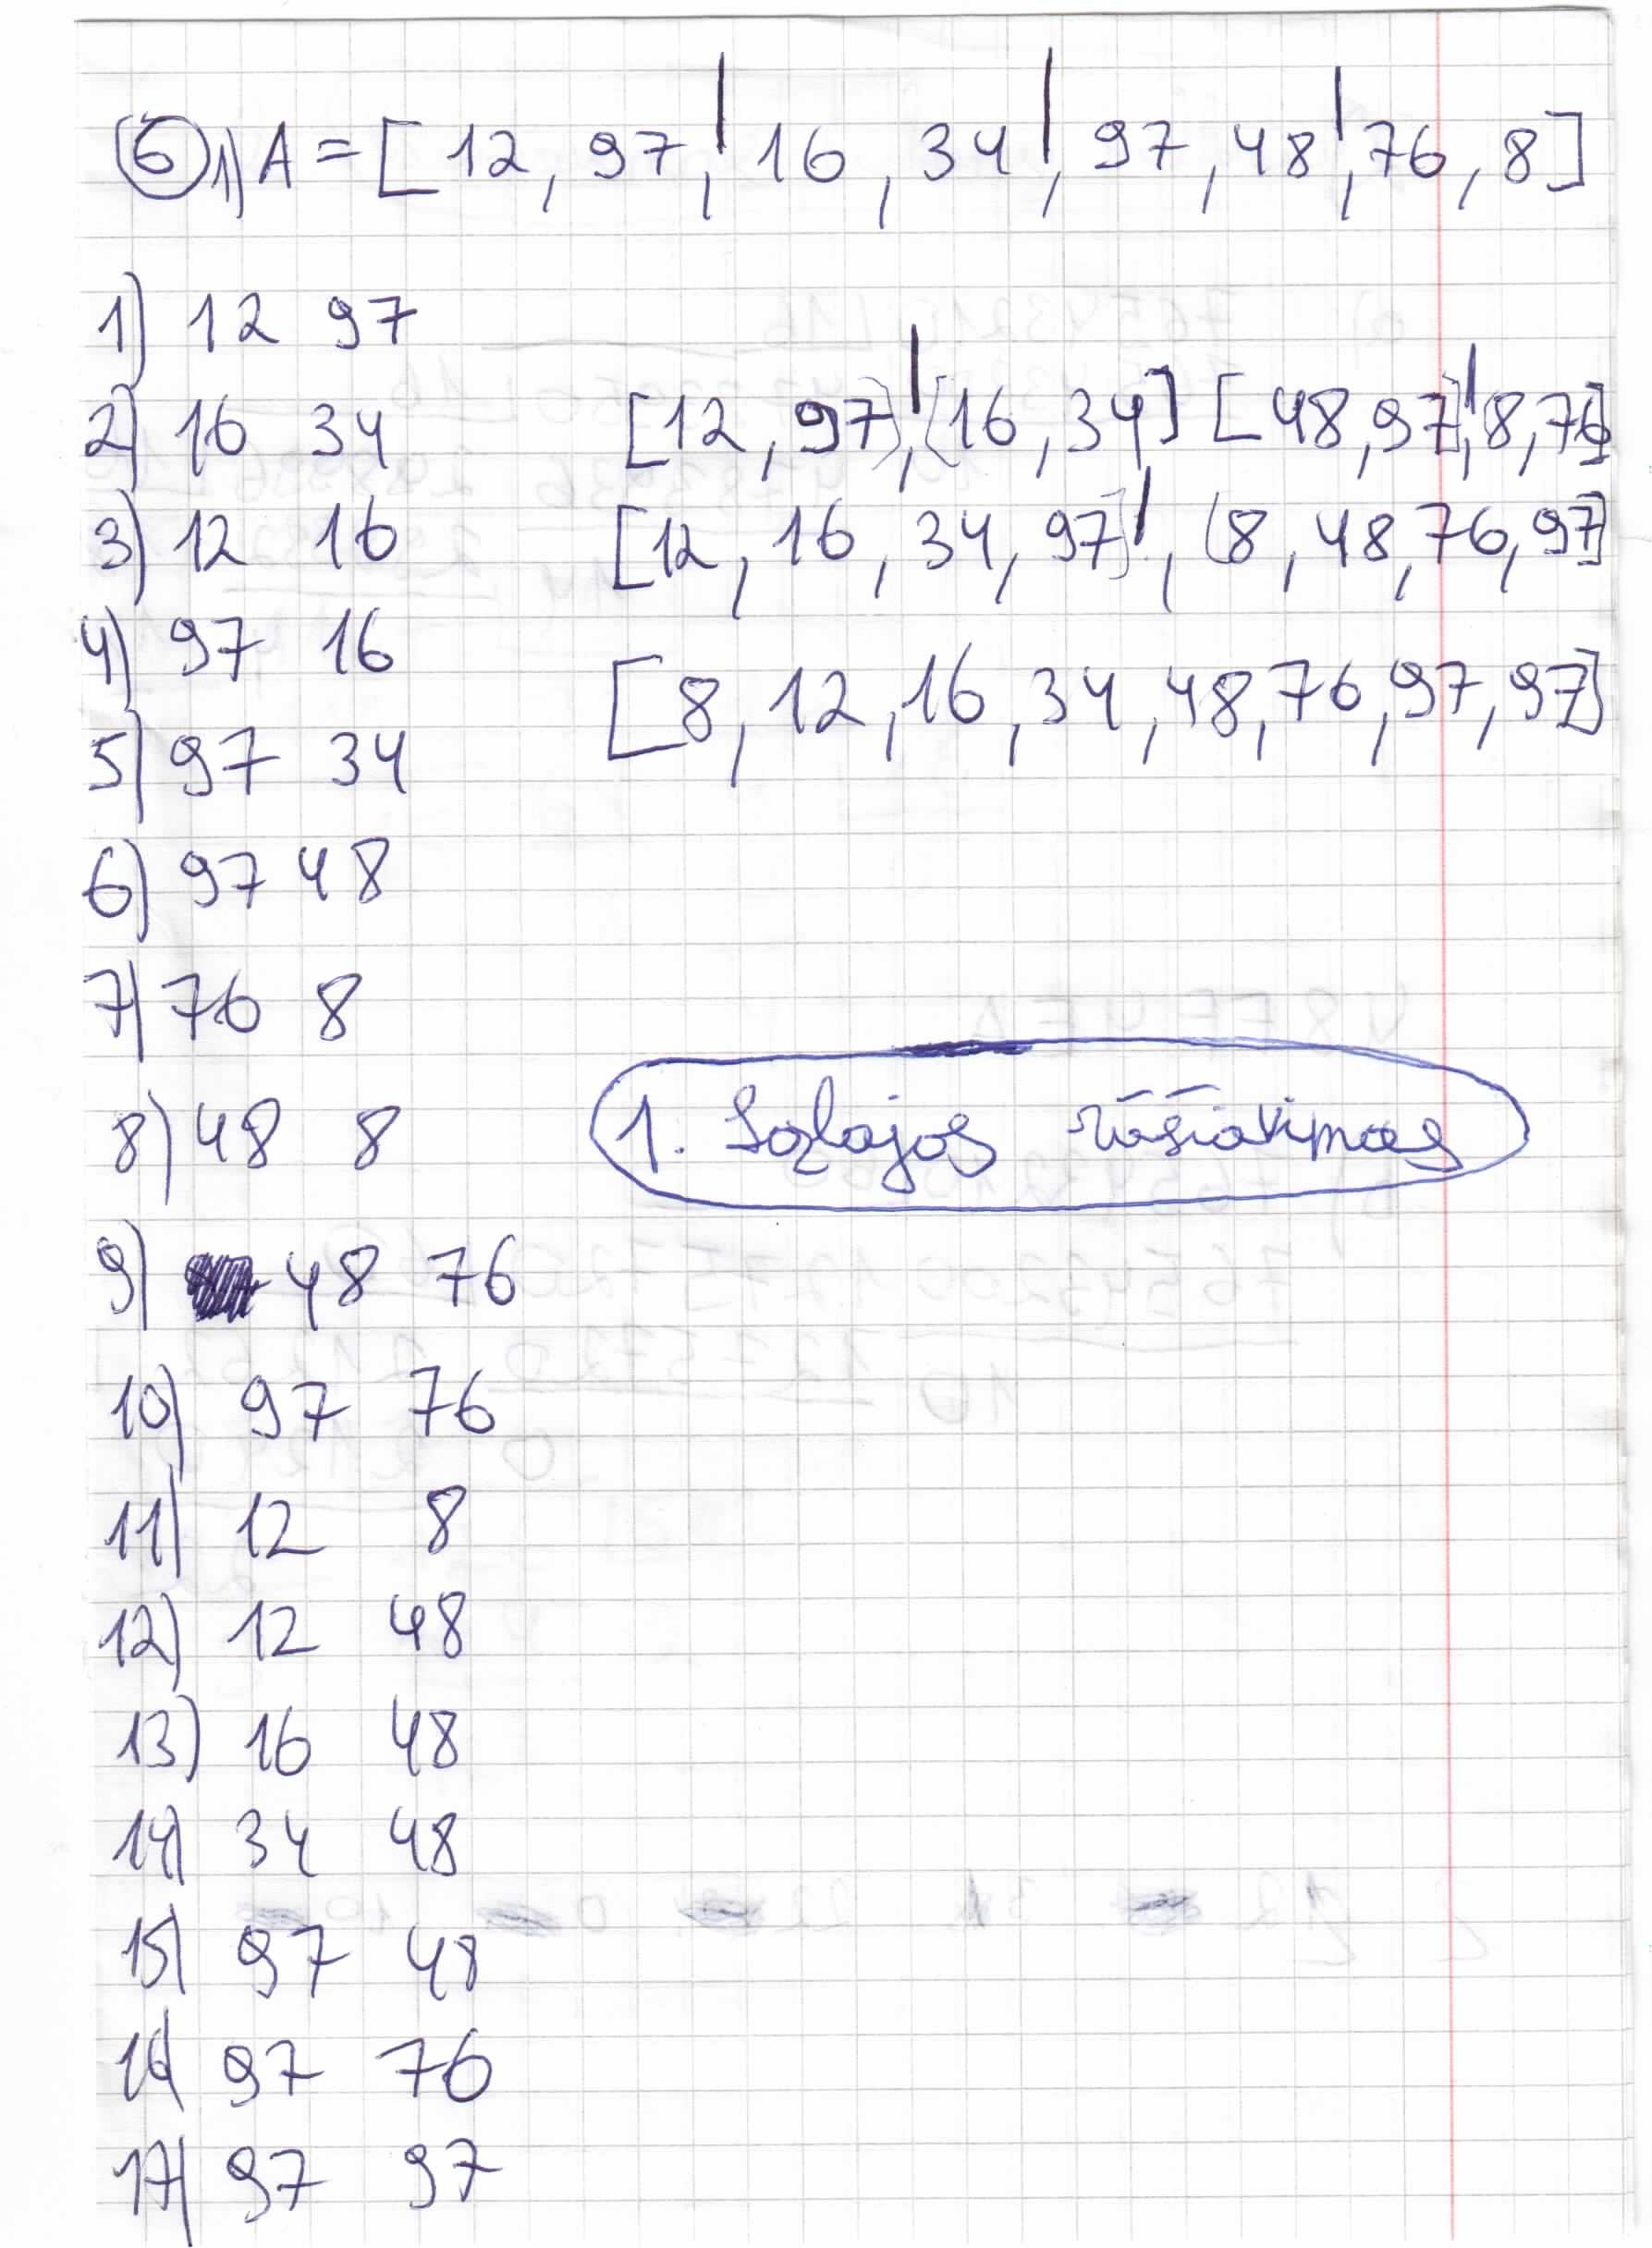 6 1) A = [12, 97, | 16, 34, | 97, 48, | 76, 8]
1) 12 97
2) 16 34
3) 12 16
4) 97 16
5) 97 34
6) 97 48
7) 76 8
8) 48 8
9) 48 76
10) 97 76
11) 12 8
12) 12 48
13) 16 48
14) 34 48
15) 97 48
16) 97 76
17) 97 97
[12, 97], | [16, 34] [48, 97], | [8, 76]
[12, 16, 34, 97] | , [8, 48, 76, 97]
[8, 12, 16, 34, 48, 76, 97, 97]
1. Sąlajos rūšiavimas